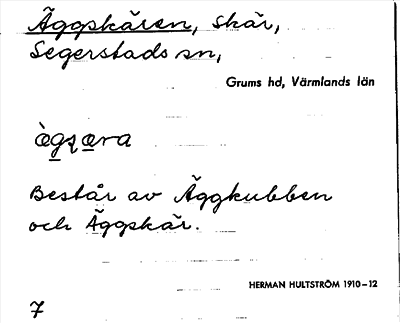 Äggskären, skär,
Segerstads sn,
Grums hd, Värmlands län
Består av Äggkubben
och Äggskär.
HERMAN HULTSTRÖM 1910–12
7